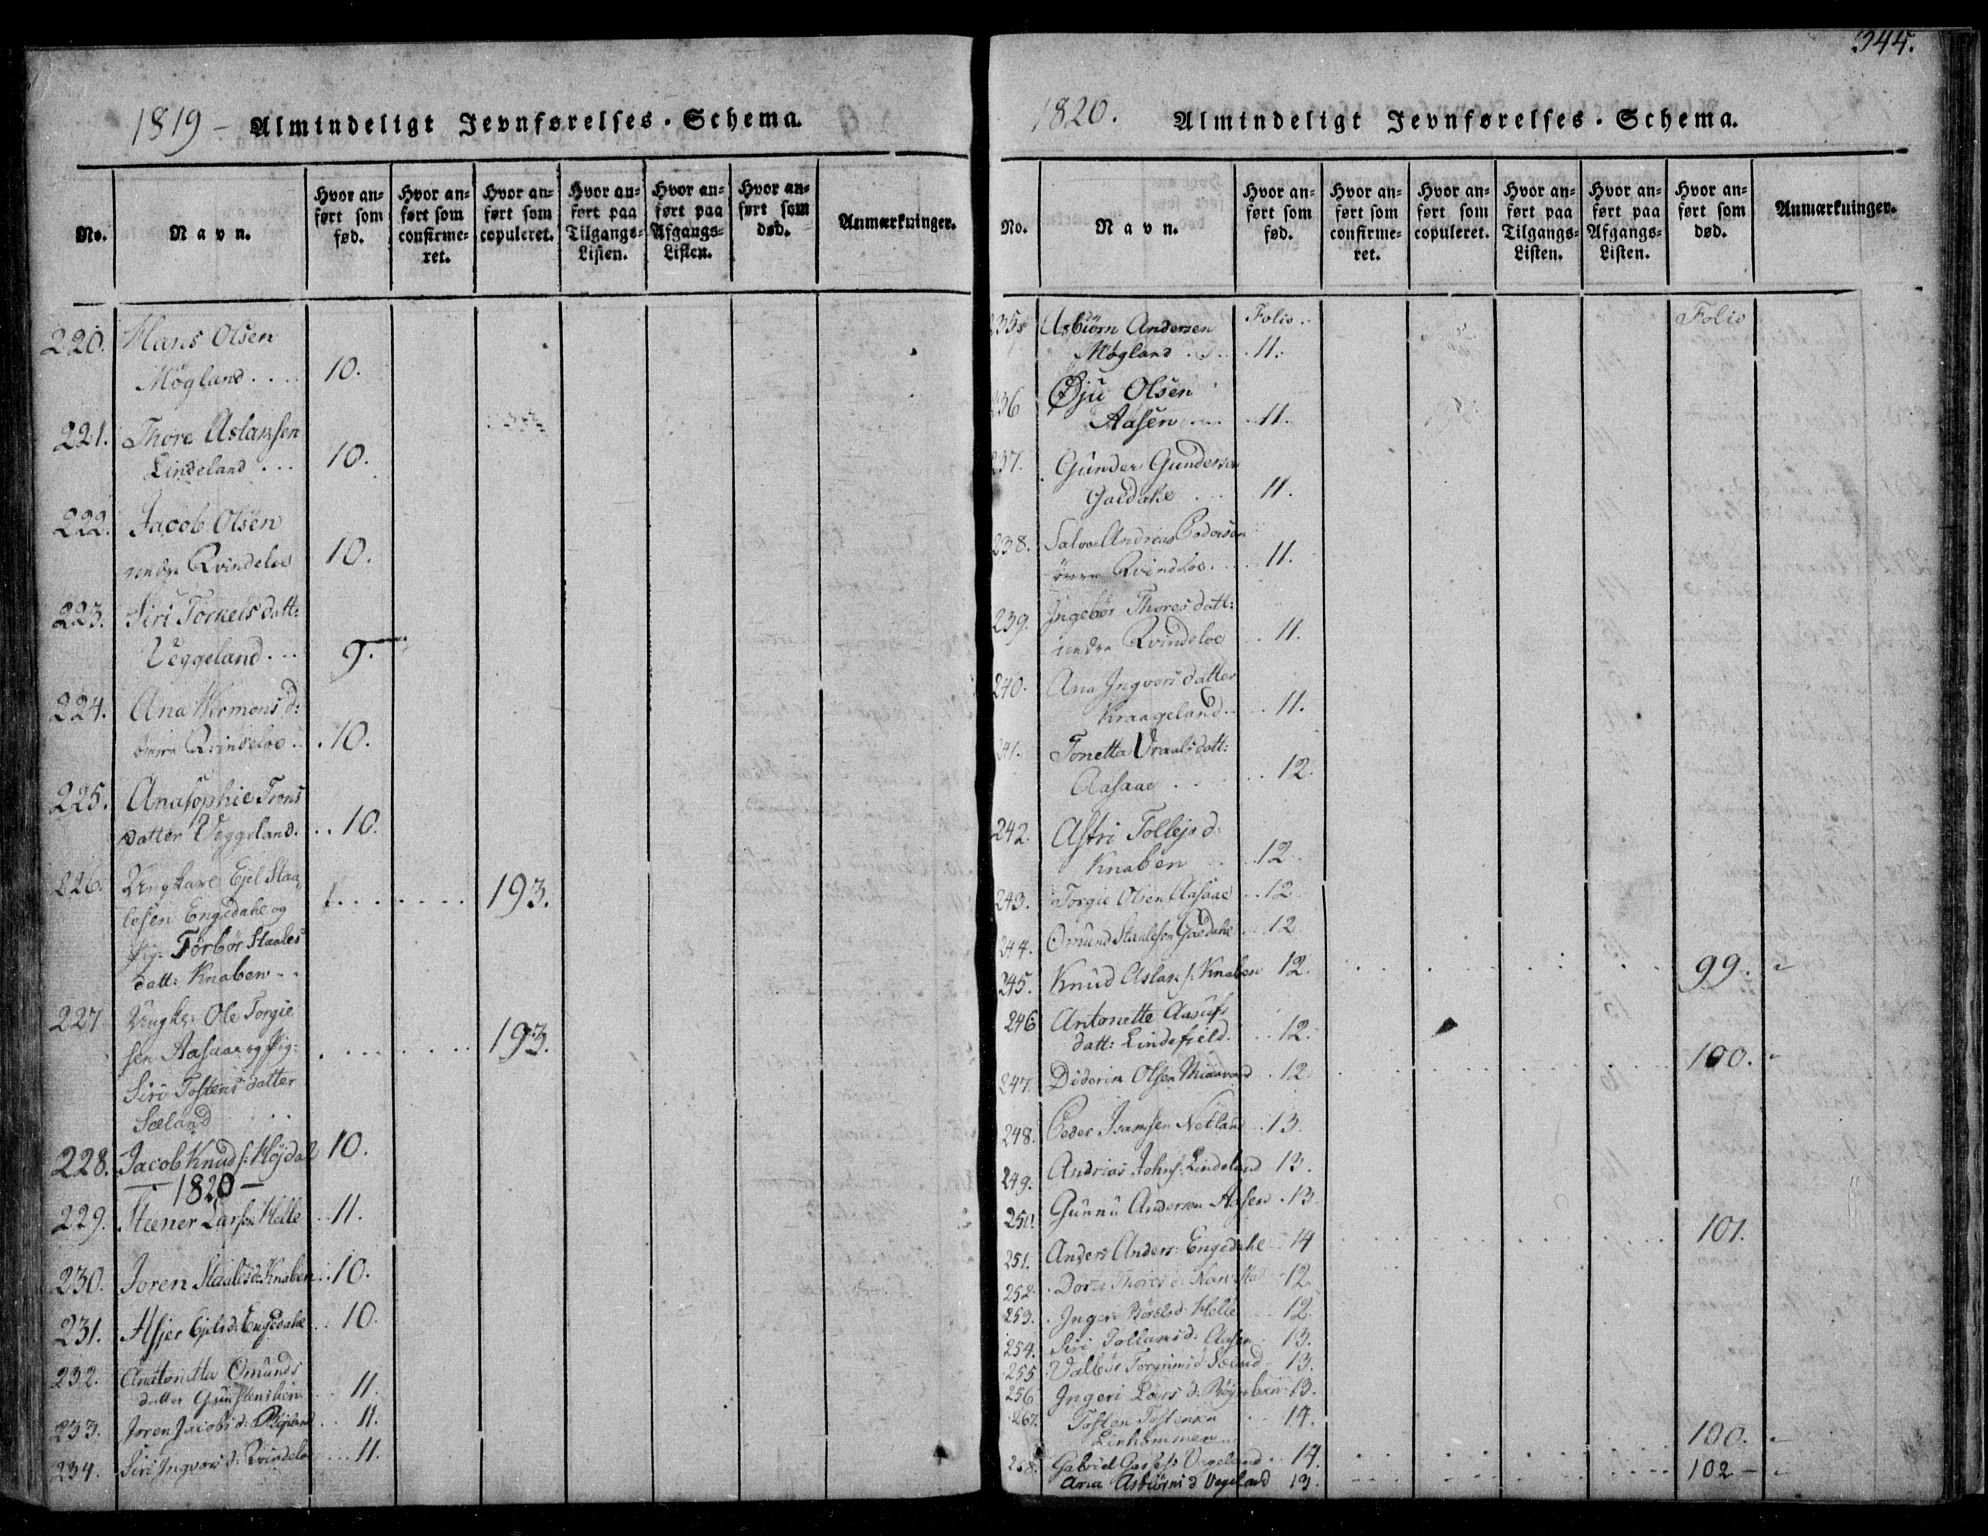 344.
1819 – Almindeligt Jevnførelses-Schema.
No.
Navn.
Hvor anført som fød.
Hvor anført som confirmeret.
Hvor anført som copuleret.
Hvor anført paa Tilgangs-Listen.
Hvor anført paa Afgangs-Listen.
Hvor anført som død.
Anmærkninger.
220. Hans Olsen
Møgland.... 10.
221. Thore Aslaksen
Lindeland... 10.
222. Jacob Olsen
nedre Qvindeloe 10.
223. Siri Torkelsdatt:
Veggeland... 9.
224. Ana d:
øvre Qvindeloe.. 10.
225. Anasophie Trons
datter Veggeland... 10.
226. Ungkarl Ejel Staa
lesen Engedahl og 193.
Pig: Torbør Staales
datt: Knaben..
227 Ungk: Ole Torgie
sen Aasaae og Pig: 193.
Siri Tostensdatter
Sæland
228. Jacob Knud s: Højdal 10.
– 1820 –
229. Steener Larsen Helle .. 11.
230. Joren Staalesd: Knaben .. 10.
231. Asjer Ejelsd: Engedahl .. 10.
232. Omunds
datter .. 11.
233. Joren Jacobsd: .. 11.
234. Siri Ingvorsd: Qvindeloe ... 11.
1820. Almindeligt Jevnførelses-Schema.
No.
Navn.
Hvor anført som fød.
Hvor anført som confirmeret.
Hvor anført som copuleret.
Hvor anført paa Tilgangs-Listen.
Hvor anført paa Afgangs-Listen.
Hvor anført som død.
Anmærkninger.
235. Asbiørn Andersen Folio. Folio
Møgland ... 11.
236 Øju Olsen
Aasen.... 11.
237. Gunder Gundersen
Gaedahl ... 11.
238. Salve Andreas Pedersen
øvre Qvindeloe.... 11.
239. Ingebør Thoresdatt:
nedre Qvindeloe .. 11.
240. Ana Ingvorsdatter
Kraageland... 11.
241. Tonetta Vraalsdatt:
Aasaae .. 12.
242. Astri Tollejsd:
Knaben ..12
243. Torgie Olsen Aasaae .. 12
244. Omund Staalesen Gaedahl .. 12
245. Knud Aslak s: Knaben 12. 99. "
246 Antonette Aasuls
datt: Lindefield. .. 12.
247. Diderik Olsen .. 12. 100. "
248. Peder Netland .. 13.
249. Andrias Johns: Lindeland 13.
250. Gunnu Andersen Aasen . 13
251. Anders Anders: Engedahl .. 14 101.
252. Thoresd: 12
253. Inger d: Helle 12
254. Siri d: Aasen 13.
255 d: Sæland 13.
256 Ingeri Larsd: 13.
267. Tosten Tostensen .. 14.
Linhommen 100. "
268. Gabriel Veggeland .. 14. 102 – "
Ana Asbiørns d Vegeland 13.